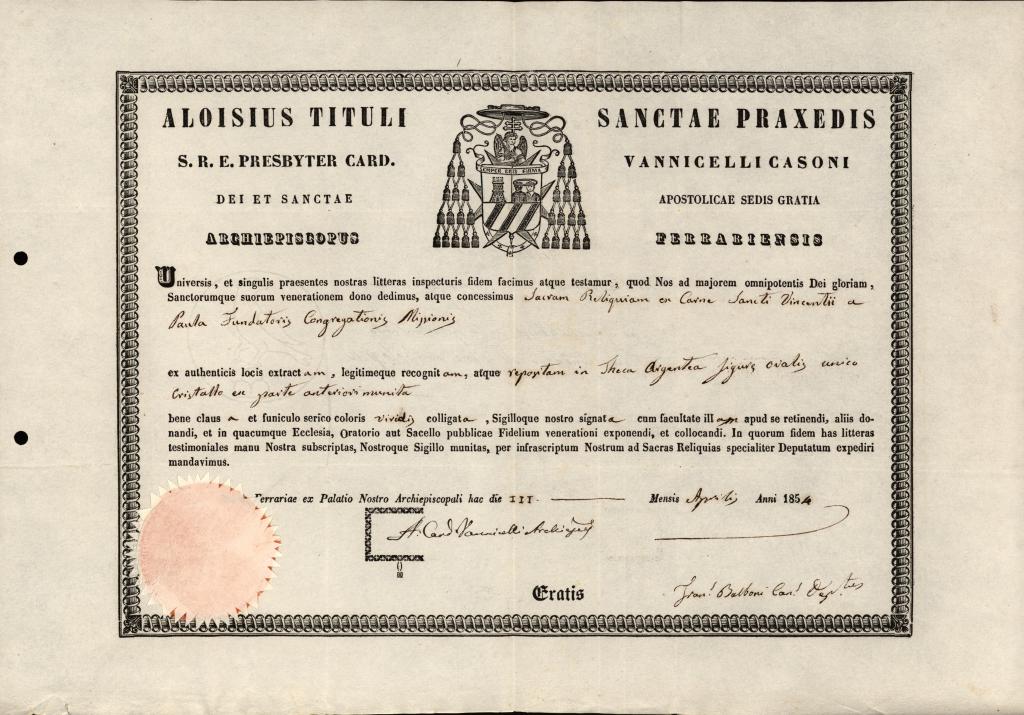 ALOISIUS TITULI SANCTAE PRAXEDIS
S. R. E. PRESBYTER CARD. VANNICELLI CASONI
DEI ET SANCTAE APOSTOLICAE SEDIS GRATIA
ARCHIEPISCOPUS FERRARIENSIS
SEMPER ERIS FIRMA
Universis, et singulis praesentes nostras litteras inspecturis fidem facimus atque testamur, quod Nos ad majorem omnipotentis Dei gloriam,
Sanctorumque suorum venerationem dono dedimus, atque concessimus Sacram Reliquiam ex Carne Sancti Vincentii a
Paula Fundatoris Congregationis Missionis
ex authenticis locis extractam, legitimeque recognitam, atque repositam in Theca Argentea figura ovalis unico
Cristallo ex parte anteriori munita
bene clausa et funiculo serico coloris viridis colligata, Sigilloque nostro signata cum facultate illam apud se retinendi, aliis do-
nandi, et in quacumque Ecclesia, Oratorio aut Sacello pubblicae Fidelium venerationi exponendi, et collocandi. In quorum fidem has litteras
testimoniales manu Nostra subscriptas, Nostroque Sigillo munitas, per infrascriptum Nostrum ad Sacras Reliquias specialiter Deputatum expediri
mandavimus.
Ferrariae ex Palatio Nostro Archiepiscopali hac die III. Mensis Aprilis Anni 1854
A. Card Vannicelli Archiepus
Gratis
Fran. Belboni Can. Deptus